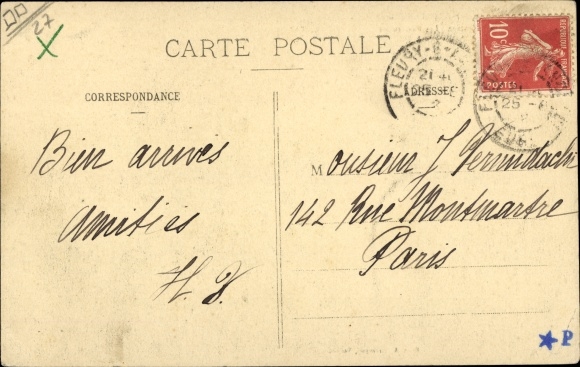 27
CARTE POSTALE
CORRESPONDANCE
ADRESSE
10c
REPUBLIQUE FRANÇAISE
POSTES
FLEURY-
21
25
Bien arrivés
Amitiés
H. J.
Monsieur J
142 Rue Montmartre
Paris
P